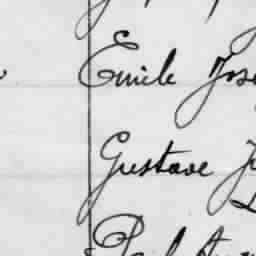 Emile Jose
Gustave
Paul